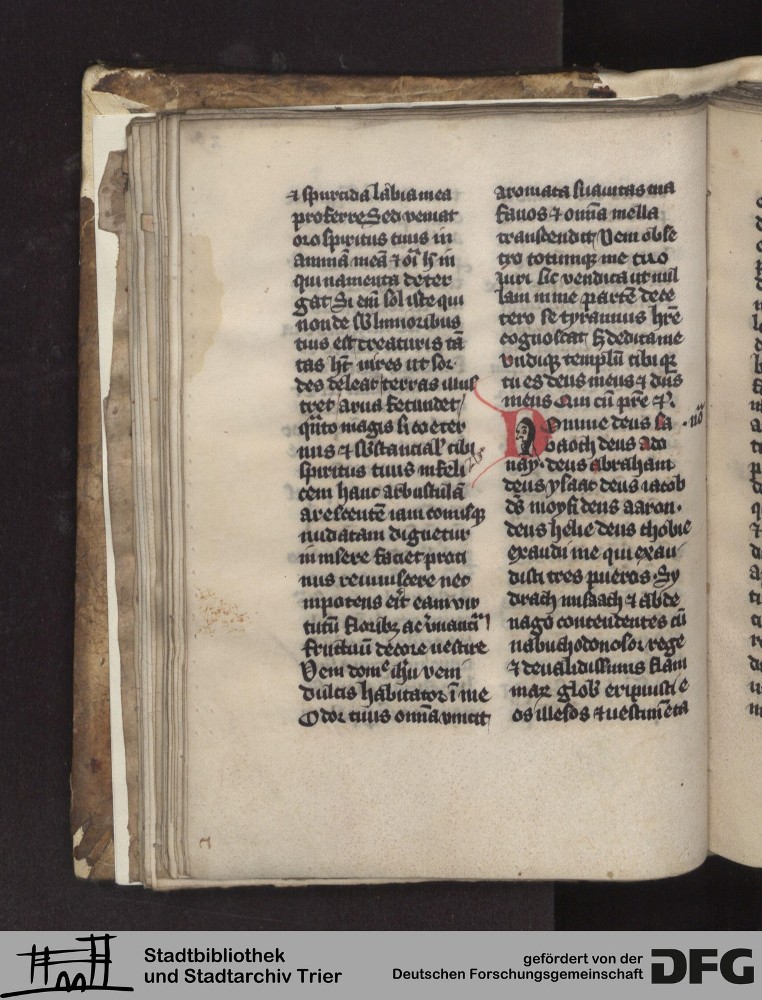 ⁊ spurcida labia mea
proferre Sed veniat
oro spiritus tuus in
animā meā ⁊ oī h̄ in
quinamenta deter
gat Si enī sol iste qui
non de sublimioribus
tuis est creaturis tā
tas ht̄ vires ut sor
des deleat terras illus
tret arua fecundet
q̄nto magis si coeter
nus ⁊ sb̄stancial' tibi
spiritus tuus infeli
cem hanc arbustulā
arescentē iam comisq̄
nudatam dignetur
in misere faciet proti
nus reuiuiscere nec
inpotens erit eam vir
tutū floribꝫ ac
fructuū decore uestire
Veni domᵉ ihū veni
dulcis habitator ī me
Odor tuus omīa vincit
aromata suauitas tua
fauos ⁊ omīa mella
transcendit Veni obse
cro totumqꝫ me tuo
Juri sic vendica ut nul
lam in me partē dece
tero se tyrannus hr̄e
cognoscat s̄ dedica me
vndiqꝫ templū tibi qꝫ
tu es deus meus ⁊ dn̄s
meus Qui cū pr̄e ⁊c̄.
Domine deus sa
baoth deus ado
nay. deus abraham
deus ysaac deus iacob
ds̄ moysi deus aaron.
deus helie deus thobie
exaudi me qui exau
disti tres pueros. Sy
drach misaach ⁊ abde
nago contendentes cū
nabuchodonosor rege
⁊ deualidissimis flam
maꝝ glob' eripuisti e
os illesos ⁊ uestimēta
Stadtbibliothek
und Stadtarchiv Trier
gefördert von der
Deutschen Forschungsgemeinschaft
DFG